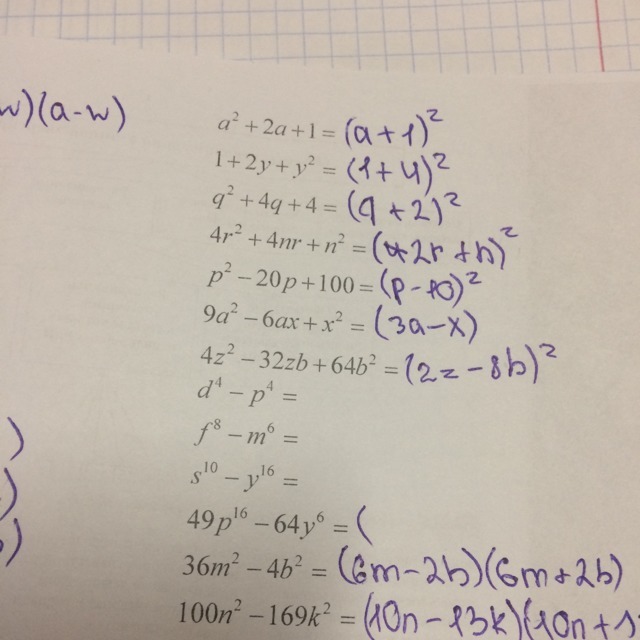 w)(a-w)
a² + 2a + 1 = (a + 1)²
1 + 2y + y² = (1 + y)²
q² + 4q + 4 = (q + 2)²
4r² + 4nr + n² = (2r + n)²
p² − 20p + 100 = (p - 10)²
9a² − 6ax + x² = (3a - x)
4z² − 32zb + 64b² = (2z - 8b)²
d⁴ − p⁴ =
f⁸ − m⁶ =
)
s¹⁰ − y¹⁶ =
)
49p¹⁶ − 64y⁶ = (
)
36m² − 4b² = (6m - 2b)(6m + 2b)
100n² − 169k² = (10n - 13k)(10n + 1